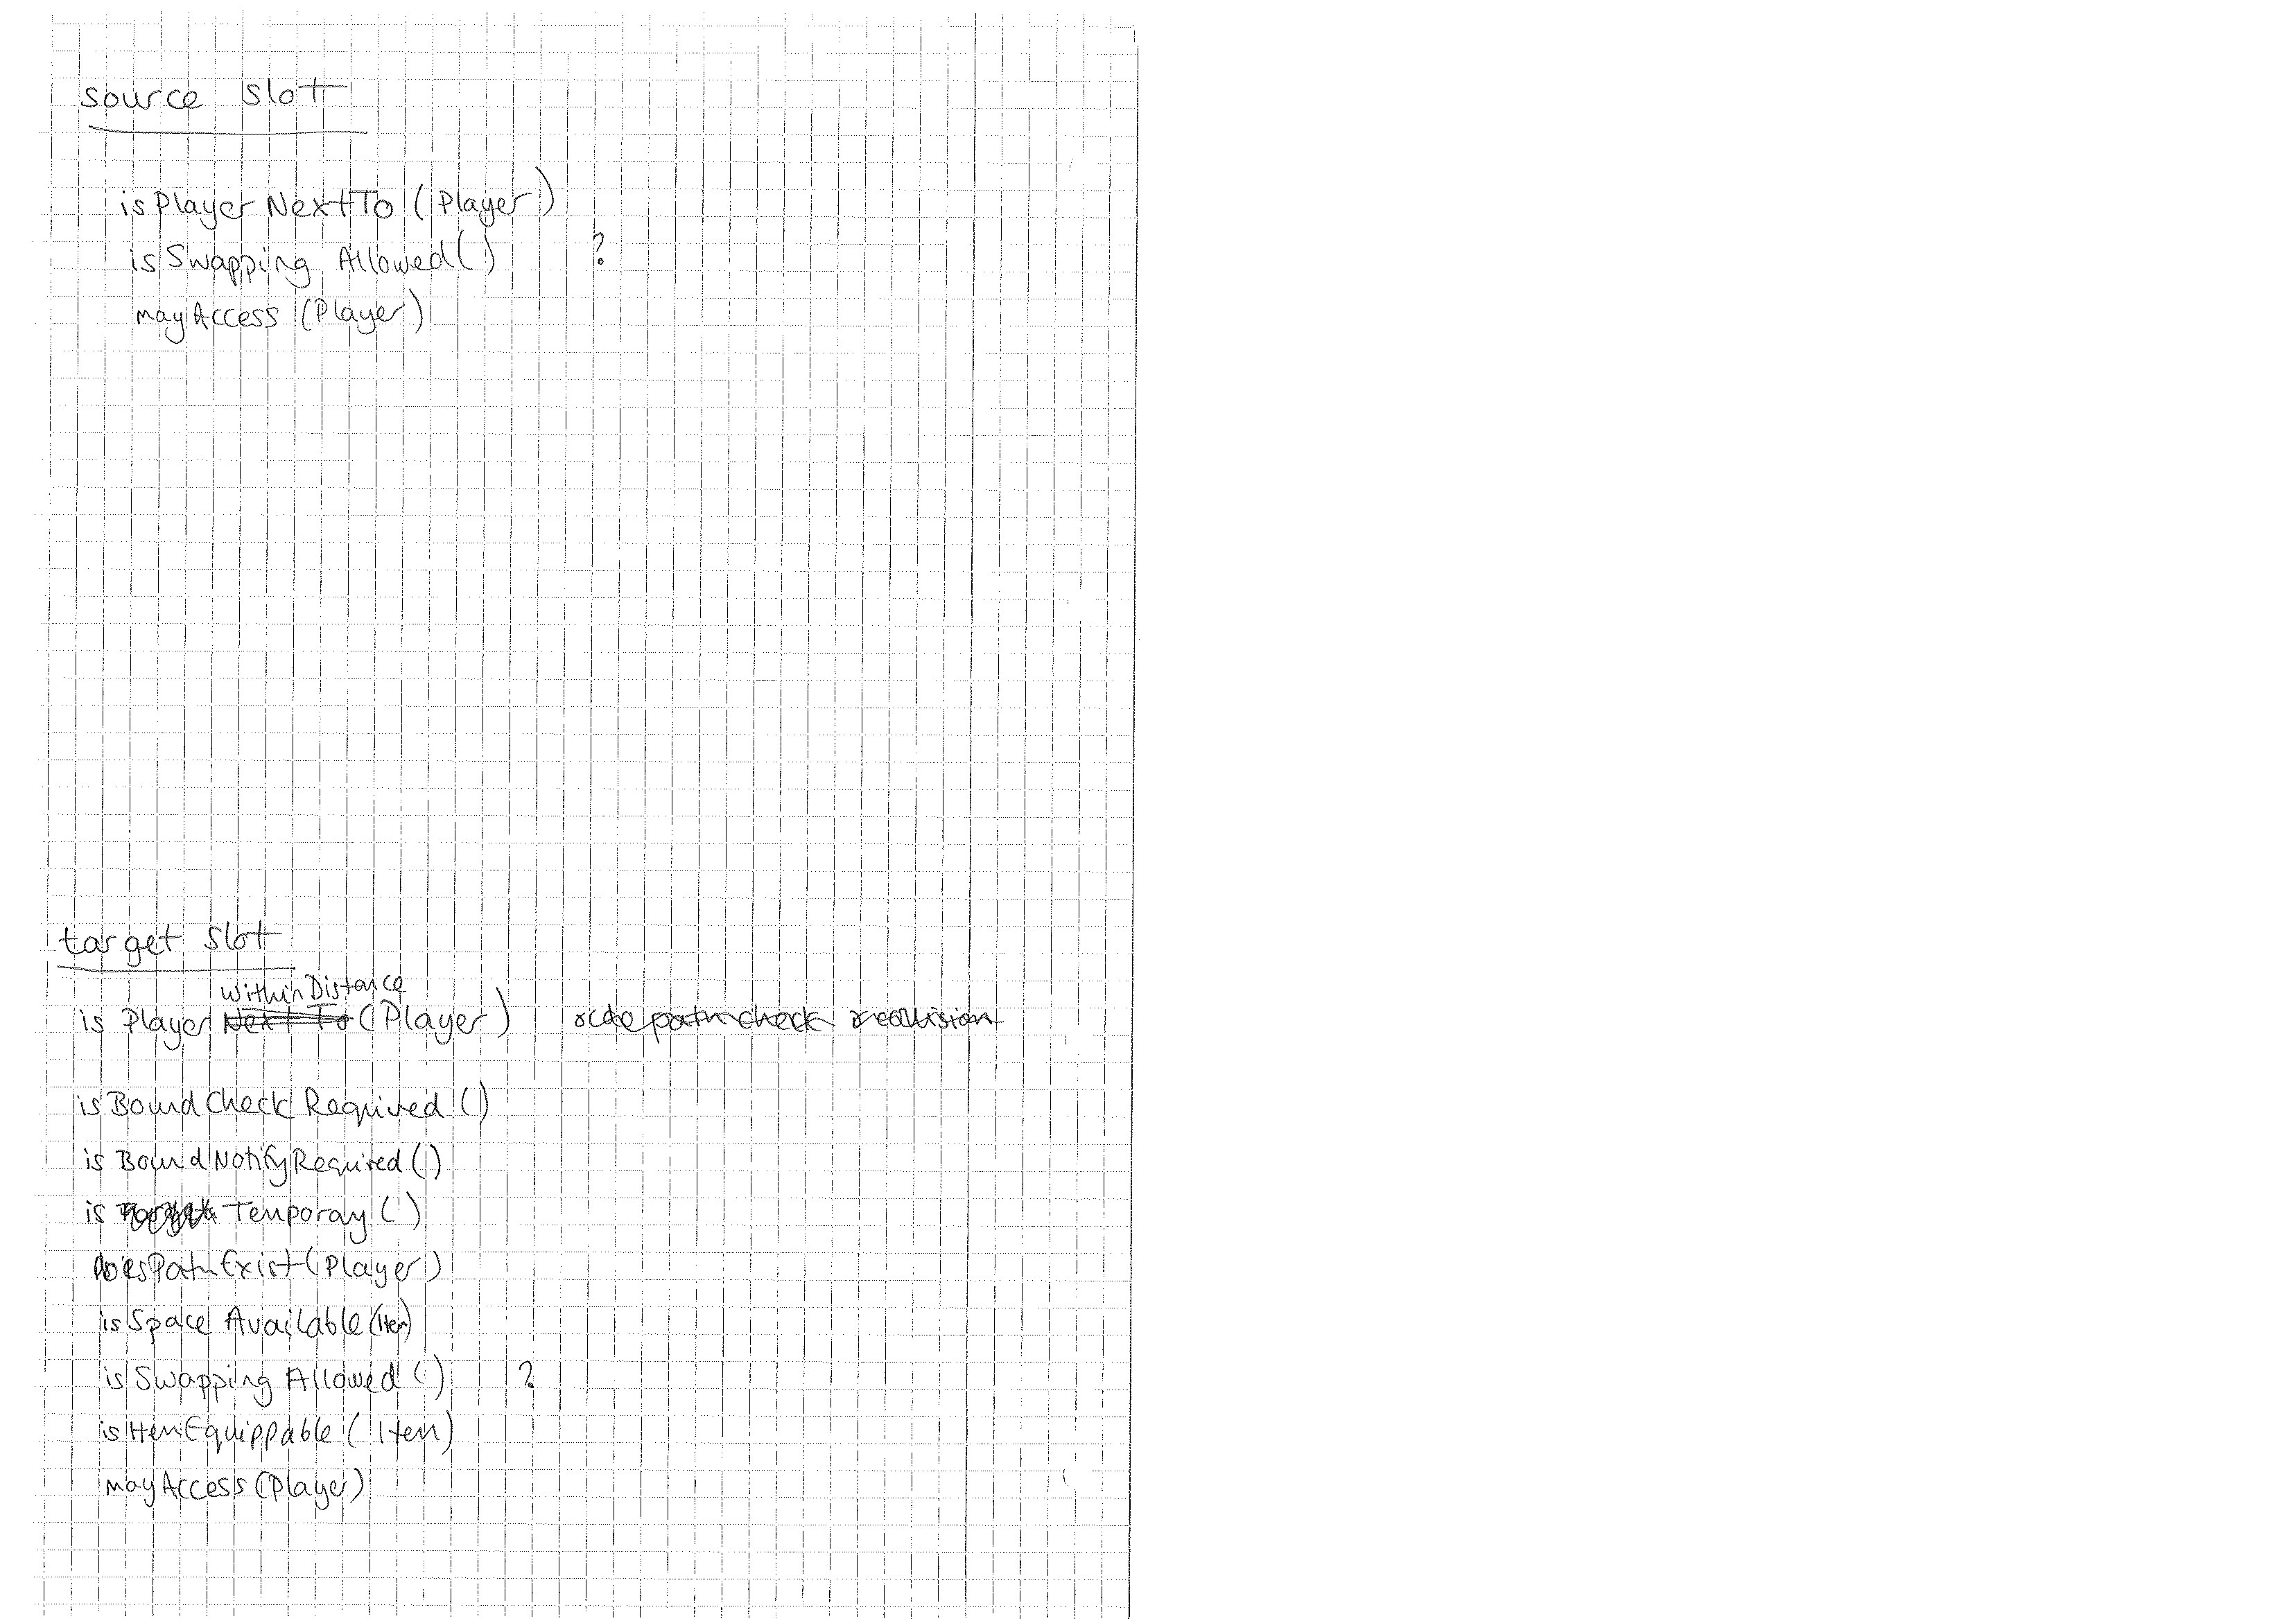 source slot
isPlayerNextTo (Player)
isSwapping Allowed() ?
mayAccess (Player)
target slot
WithinDistance
is Player Next To (Player) path check collision
isBoundCheck Required ()
is BoundNotifyRequired ()
is Temporay ()
doesPathExist (Player)
isSpace Available (Item)
isSwapping Allowed () ?
isItemEquippable ( Item)
mayAccess (Player)